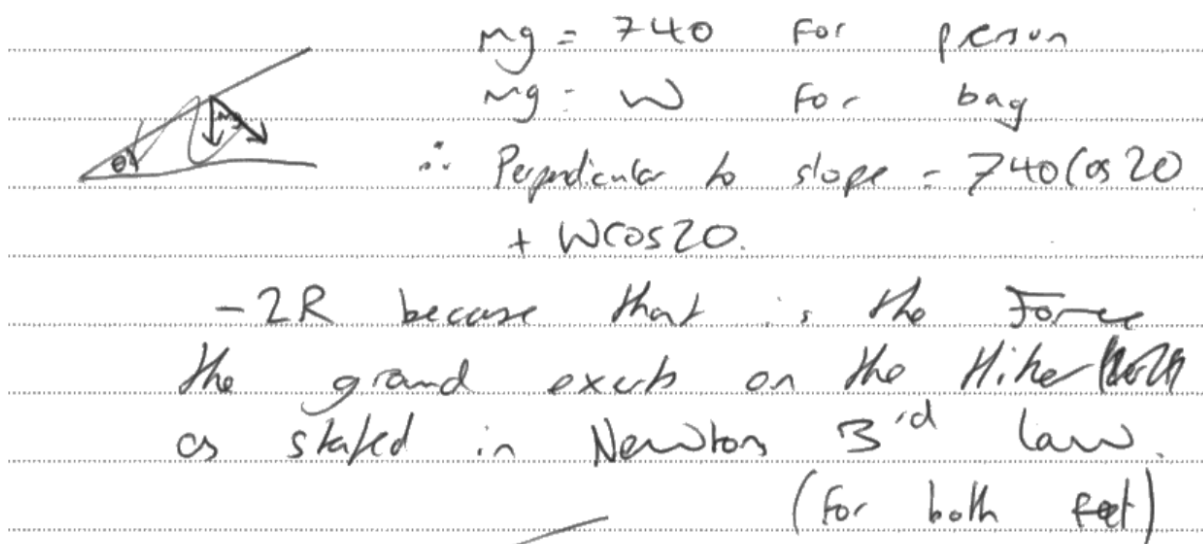 mg = 740 for person
mg = W for bag
θ mg
∴ Perpendicular to slope = 740 cos 20
+ W cos 20.
- 2R because that is the Force
the ground exerts on the Hiker
as stated in Newtons 3rd law.
(for both feet)